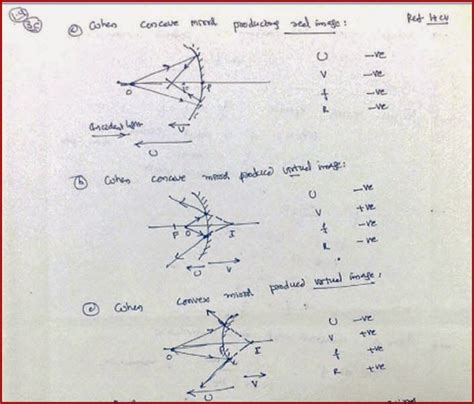 Ref HCV
(a) When concave mirror producting real image :
U -ve
V -ve
f -ve
R -ve
O
F
P
V
U
(b) When concave mirror produced virtual image :
U -ve
V +ve
f -ve
R -ve
F O I
U V
(c) When convex mirror produced virtual image :
U -ve
V +ve
f +ve
R +ve
O P I
V
U